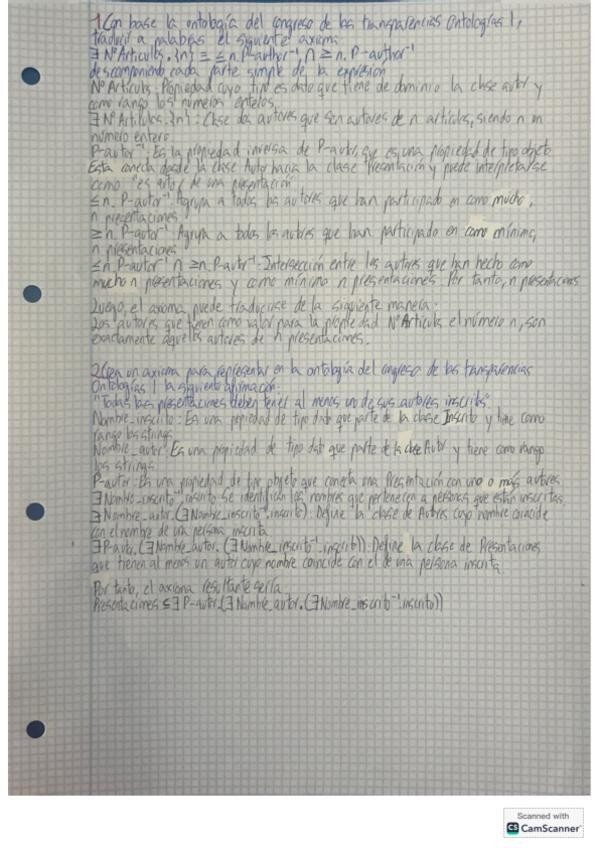 1. Con base la ontología del congreso de las transparencias Ontologías 1,
traducir a palabras el siguiente axioma:
∃ NºArticulos.{n} ≡ ≤ n. P-author⁻¹ ∩ ≥ n. P-author⁻¹
descomponiendo cada parte simple de la expresión
NºArticulos: Propiedad cuyo tipo es dato que tiene de dominio la clase autor y
como rango los números enteros.
∃ NºArticulos.{n}: Clase dos autores que son autores de n artículos, siendo n un
número entero.
P-autor⁻¹: Es la propiedad inversa de P-autor, que es una propiedad de tipo objeto.
Esta conecta desde la clase Autor hacia la clase Presentación y puede interpretarse
como "es autor de una presentación".
≤n. P-autor⁻¹: Agrupa a todos los autores que han participado en como mucho,
n presentaciones
≥n. P-autor⁻¹: Agrupa a todos los autores que han participado en como mínimo,
n presentaciones
≤n. P-autor⁻¹ ∩ ≥n. P-autor⁻¹: Intersección entre los autores que han hecho como
mucho n presentaciones y como mínimo n presentaciones. Por tanto, n presentaciones
Luego, el axioma puede traducirse de la siguiente manera:
Los autores que tienen como valor para la propiedad NºArticulos el número n, son
exactamente aquellos autores de n presentaciones.
2. Crea un axioma para representar en la ontología del congreso de las transparencias
Ontologías 1 la siguiente afirmación:
"Todas las presentaciones deben tener al menos uno de sus autores inscrito"
Nombre_inscrito: Es una propiedad de tipo dato que parte de la clase Inscrito y tiene como
rango los strings
Nombre_autor: Es una propiedad de tipo dato que parte de la clase Autor y tiene como rango
los strings
P-autor: Es una propiedad de tipo objeto que conecta una Presentación con uno o más autores
∃ Nombre_inscrito⁻¹.inscrito se identifican los nombres que pertenecen a personas que están inscritas.
∃ Nombre_autor.(∃ Nombre_inscrito⁻¹.inscrito): Define la clase de Autores cuyo nombre coincide
con el nombre de una persona inscrita
∃ P-autor.(∃ Nombre_autor.(∃ Nombre_inscrito⁻¹.inscrito)): Define la clase de Presentaciones
que tienen al menos un autor cuyo nombre coincide con el de una persona inscrita
Por tanto, el axioma resultante sería:
Presentaciones ⊆ ∃ P-autor.(∃ Nombre_autor.(∃ Nombre_inscrito⁻¹.inscrito))
Scanned with
CS CamScanner